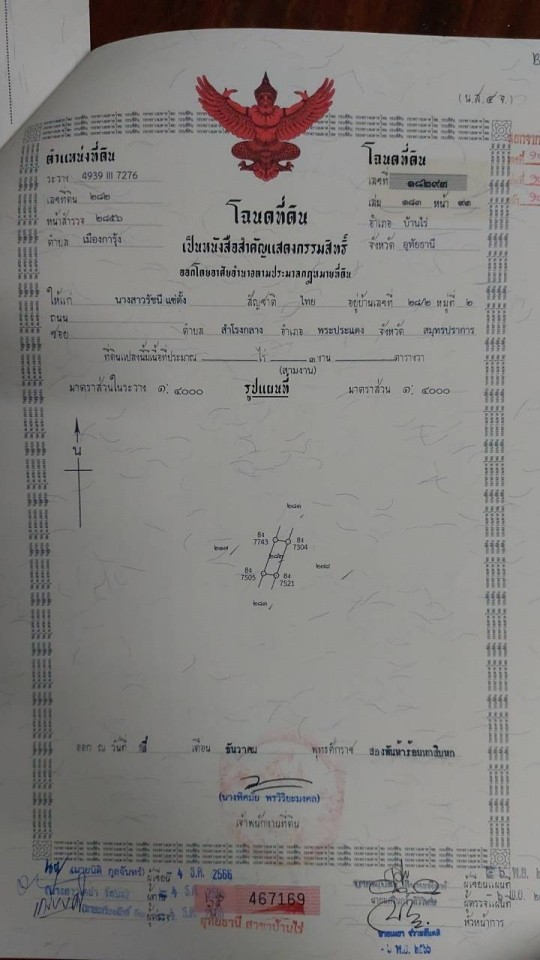 (น.ส.๔ จ.)
ตำแหน่งที่ดิน
ระวาง 4939 III 7276
เลขที่ดิน ๒๘๒
หน้าสำรวจ ๒๘๕๖
ตำบล เมืองการุ้ง
โฉนดที่ดิน
เลขที่ ๑๘๒๙๓
เล่ม ๑๘๓ หน้า ๙๓
อำเภอ บ้านไร่
จังหวัด อุทัยธานี
โฉนดที่ดิน
เป็นหนังสือสำคัญแสดงกรรมสิทธิ์
ออกโดยอาศัยอำนาจตามประมวลกฎหมายที่ดิน
ให้แก่ นางสาวรัชนี แซ่ตั้ง สัญชาติ ไทย อยู่บ้านเลขที่ ๒๘/๒ หมู่ที่ ๒
ถนน
ซอย ตำบล สำโรงกลาง อำเภอ พระประแดง จังหวัด สมุทรปราการ
ที่ดินแปลงนี้มีเนื้อที่ประมาณ ไร่ ๓ งาน ตารางวา
(สามงาน)
มาตราส่วนในระวาง ๑: ๔๐๐๐ รูปแผนที่ มาตราส่วน ๑: ๔๐๐๐
น
๒๘๓
8ง 7743
8ง 7304
๒๘๒
8ง 7505
8ง 7521
๒๘๓
ออก ณ วันที่ สี่ เดือน ธันวาคม พุทธศักราช สองพันห้าร้อยหกสิบหก
(นางพิศมัย พรวิริยะมงคล)
เจ้าพนักงานที่ดิน
(นายนิติ กูลจันทร์) ผู้เขียน 4 ธ.ค. 2566
467169
อุทัยธานี สาขาบ้านไร่
ผู้เขียนแผนที่
ผู้ตรวจแผนที่
หัวหน้าการ